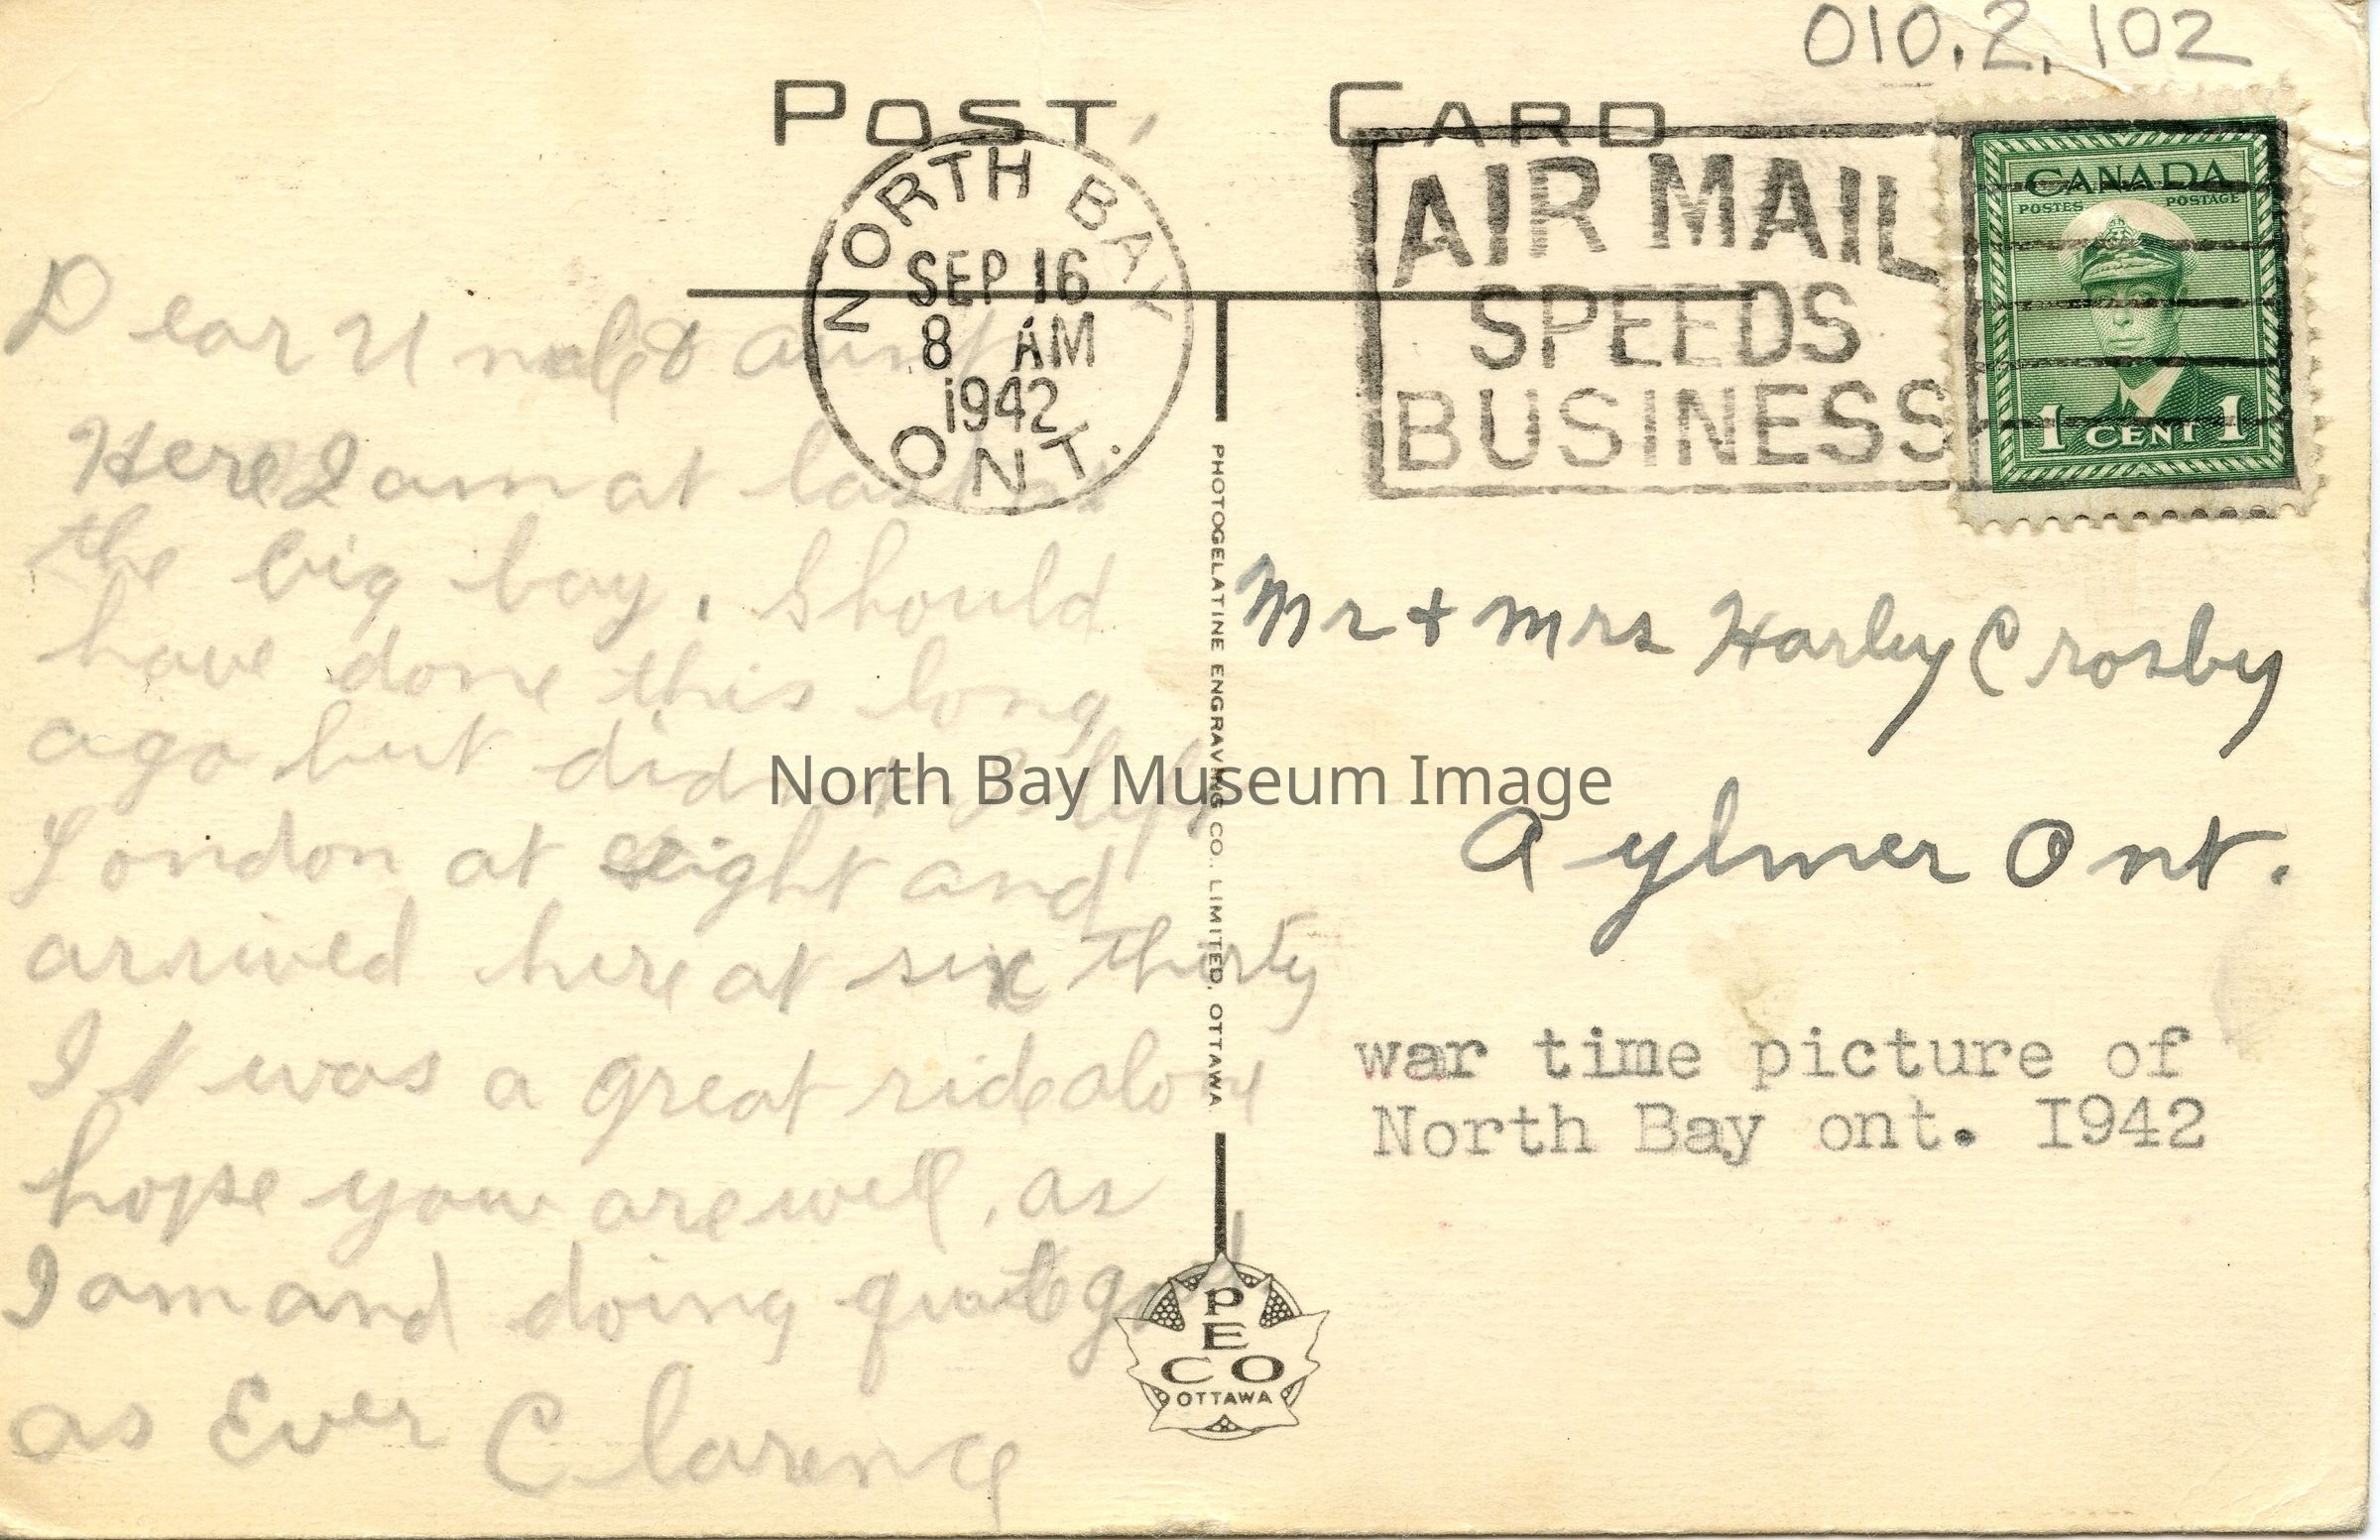 010.2.102
POST CARD
NORTH BAY
SEP 16
8 AM
1942
ONT.
AIR MAIL
SPEEDS
BUSINESS
CANADA
POSTES POSTAGE
1 CENT 1
Dear Uncle & aunt
Here I am at last at
the big bay, should
have done this long
ago but didn't I left
London at eight and
arrived here at six thirty
It was a great ride alone
hope you are well, as
I am and doing quite good
as Ever Clarence
PHOTOGELATINE ENGRAVING CO., LIMITED, OTTAWA
Mr + Mrs Harley Crosby
Aylmer Ont.
North Bay Museum Image
war time picture of
North Bay ont. I942
PECO
OTTAWA